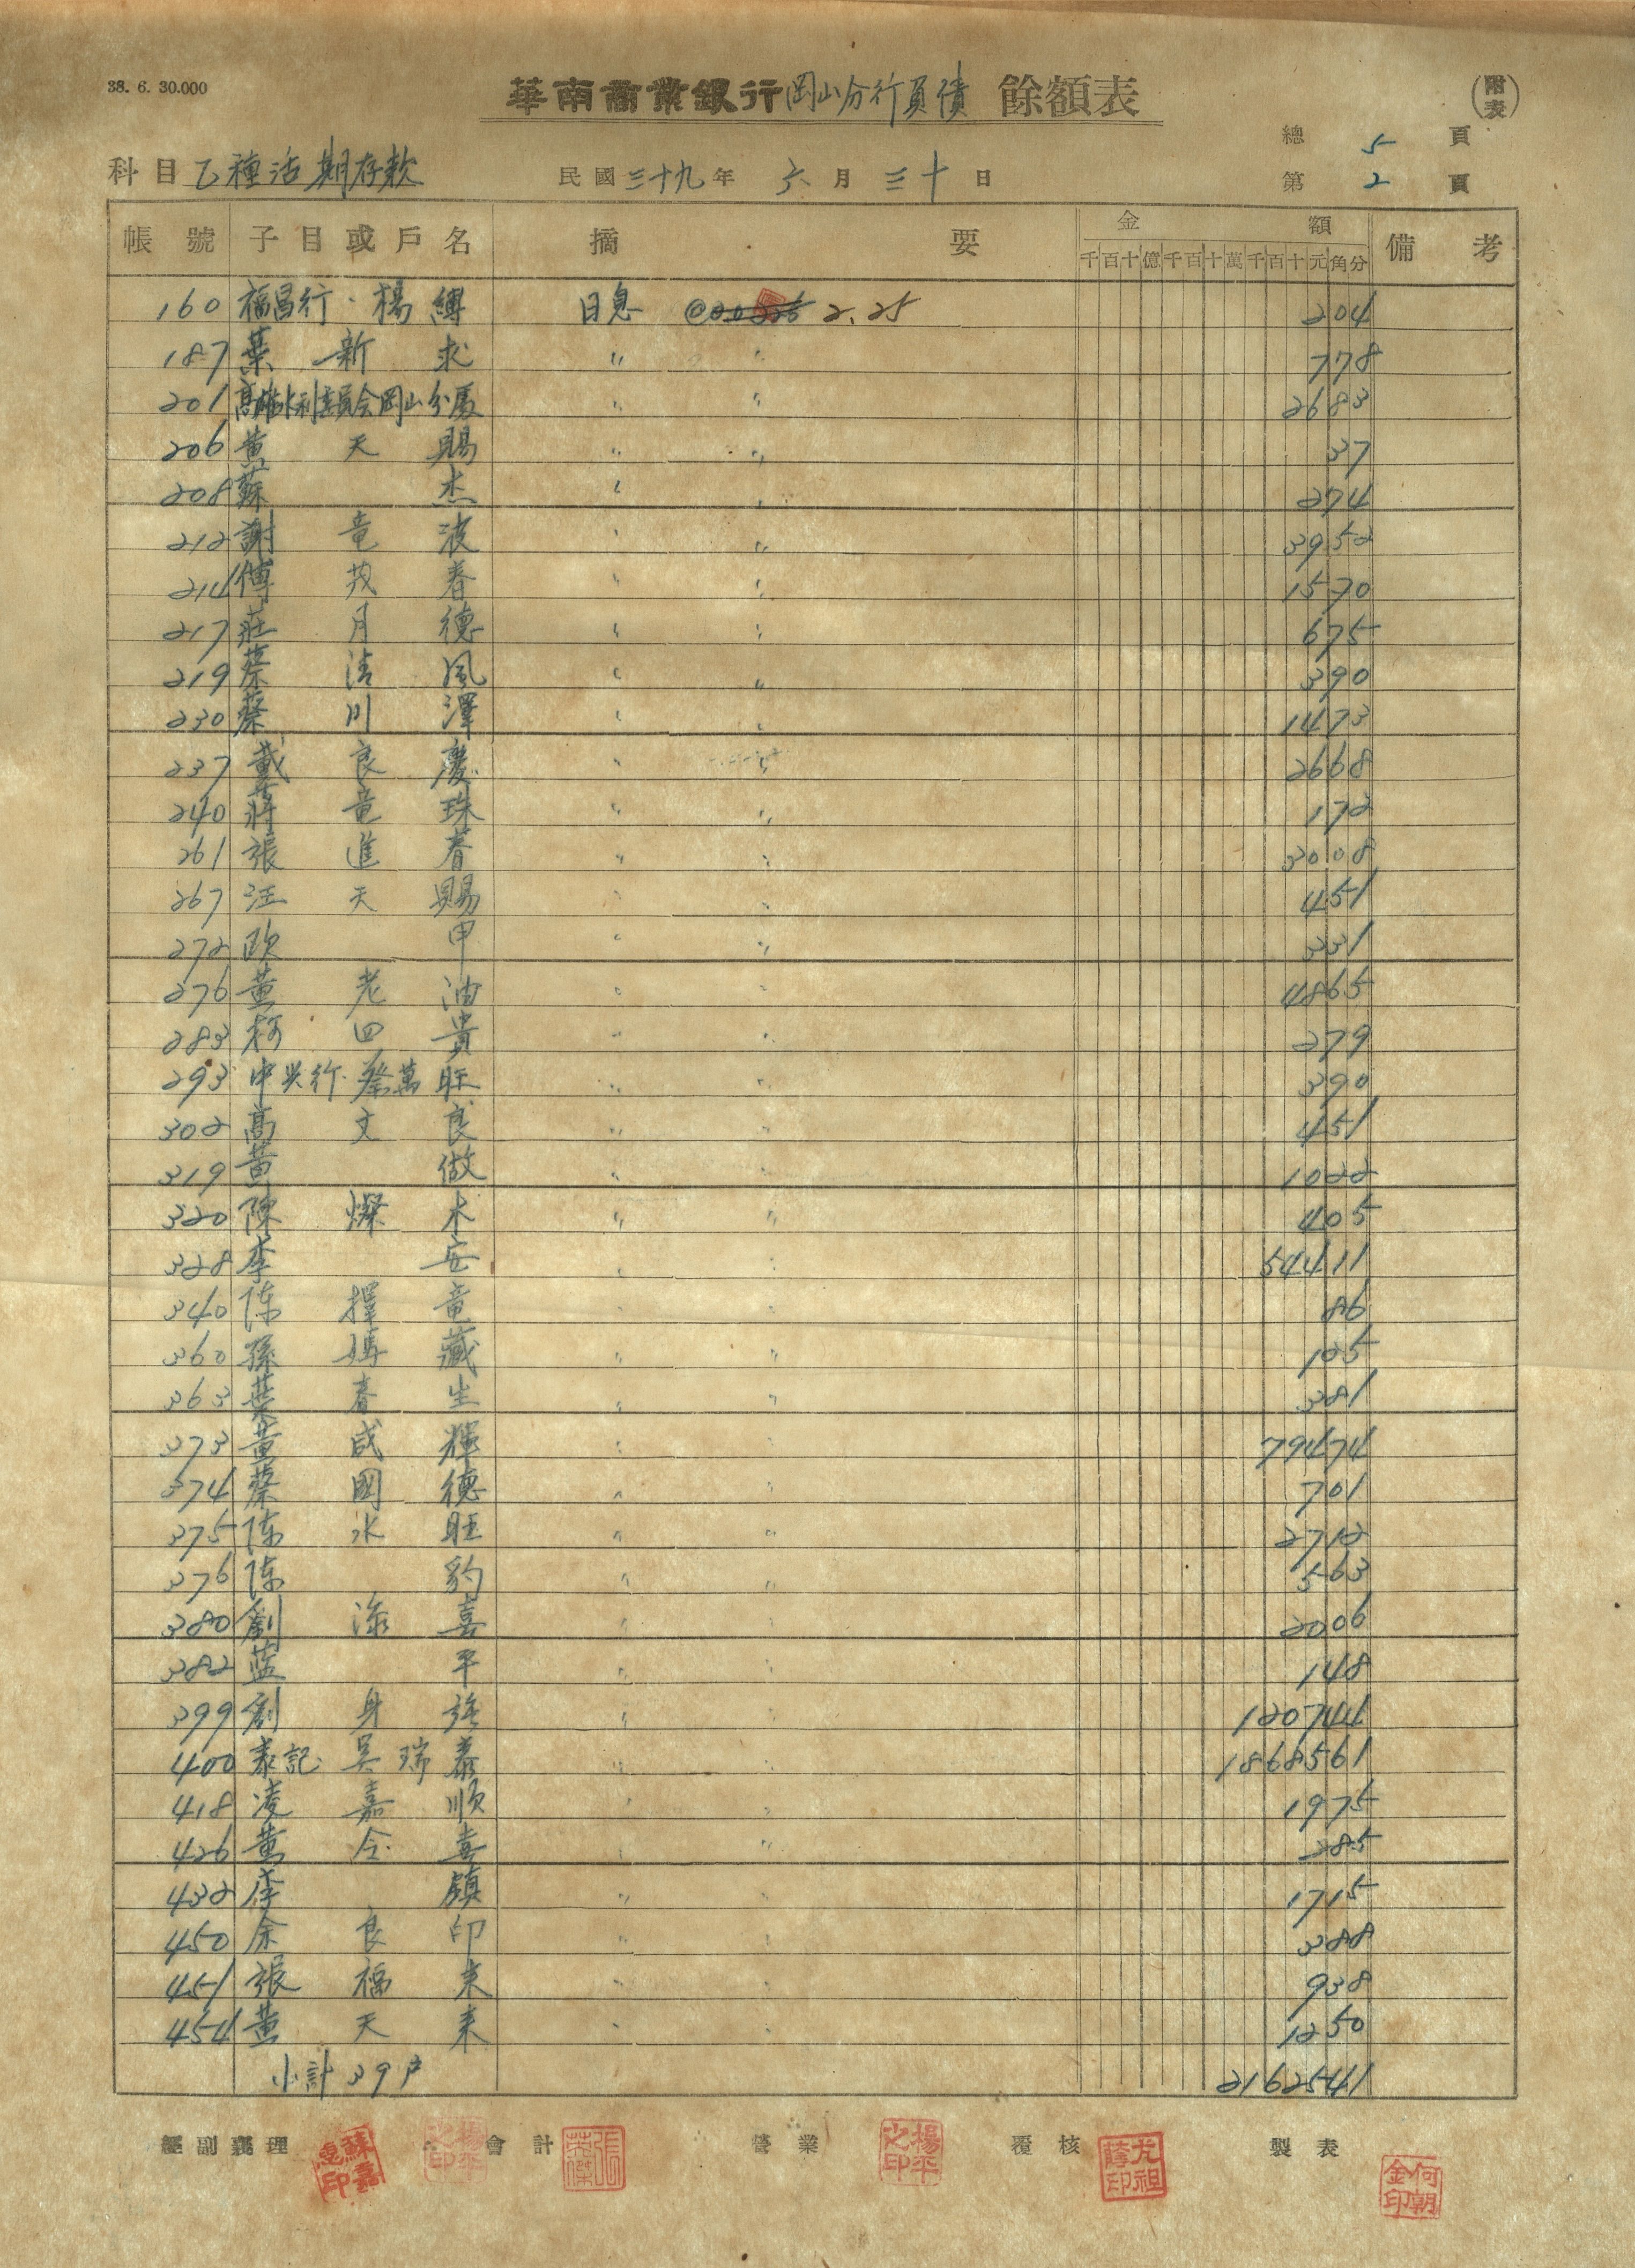 38. 6. 30.000
華南商業銀行岡山分行負債 餘額表
(附表)
總 5 頁
科目乙種活期存款 民國三十九年 六月三十日 第 2 頁
帳號 子目或戶名 摘要 金額 備考
千百十億千百十萬千百十元角分
160 福昌行·楊縛 日息 2.25 204
187 葉新求 〃 〃 778
201 高雄水利委員会岡山分處 〃 〃 2683
206 黃天賜 〃 〃 37
208 蘇杰 〃 〃 274
212 謝竜波 〃 〃 3952
214 傅茂春 〃 〃 1570
217 莊月德 〃 〃 675
219 蔡清風 〃 〃 390
230 蔡川澤 〃 〃 1473
237 戴良慶 〃 〃 2668
240 蔣竜珠 〃 〃 172
261 張進春 〃 〃 3008
267 汪天賜 〃 〃 451
272 欧甲 〃 〃 331
276 黃老油 〃 〃 4865
283 柯四貴 〃 〃 279
293 中兴行·蔡萬旺 〃 〃 390
302 高文良 〃 〃 451
319 黃做 〃 〃 1022
320 陳燦木 〃 〃 405
328 李安 〃 〃 54411
340 陈擇竜 〃 〃 86
360 孫媽藏 〃 〃 125
363 葉春生 〃 〃 381
373 黃成輝 〃 〃 79474
374 蔡國德 〃 〃 701
375 陈水旺 〃 〃 2712
376 陈豹 〃 〃 563
380 劉添喜 〃 〃 2006
382 蓝平 〃 〃 148
399 劉身強 〃 〃 120744
400 泰記·吳瑞泰 〃 〃 1868561
418 凌嘉順 〃 〃 1975
426 黃全喜 〃 〃 285
432 李鎮 〃 〃 1715
450 余良印 〃 〃 388
451 張福来 〃 〃 938
454 黃天来 〃 〃 1250
小計39戶 2162541
經副襄理 會計 營業 覆核 製表
蘇嘉惠印 楊平之印 張榮傑 楊平之印 尤祖蔭印 何朝金印